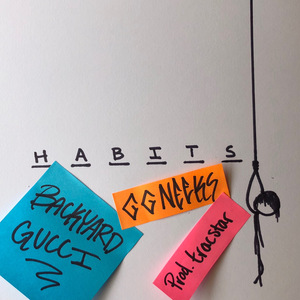 HABITS
BACKYARD
GUCCI
GGNEEKS
Prod. tracstar